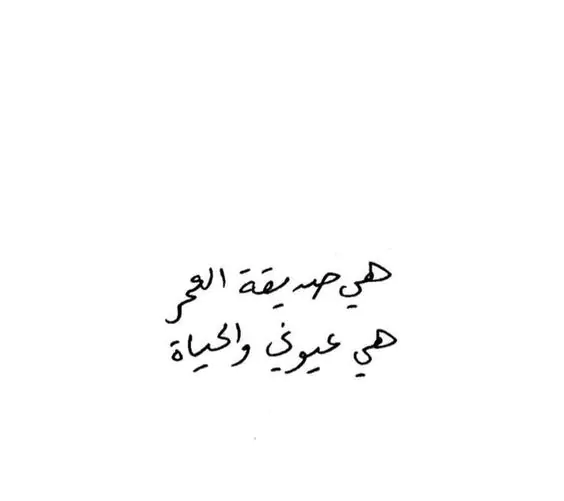 هي صديقة العمر
هي عيوني والحياة